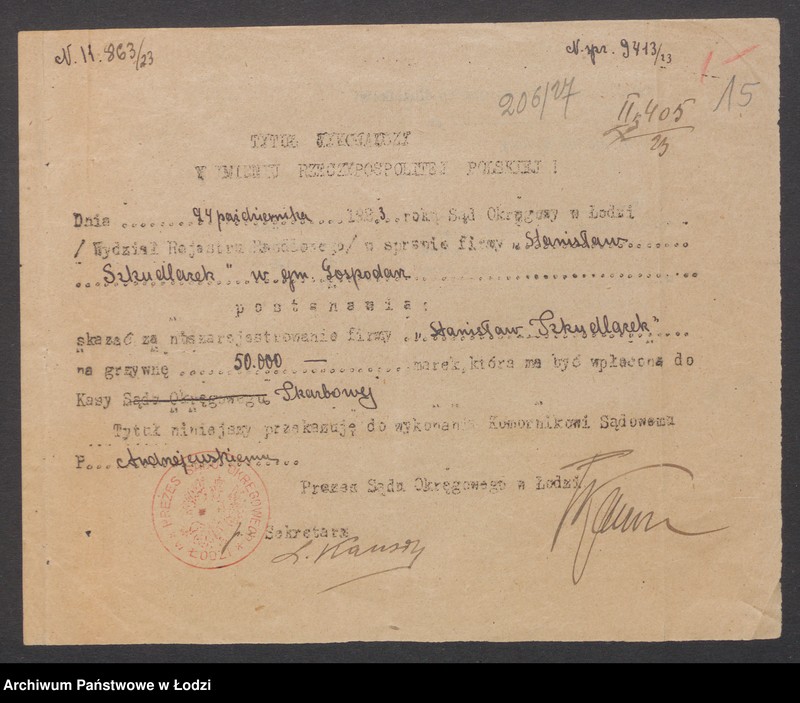 N. H. 863/23
N. spr. 9413/23
206/27
II 405/23
15
TYTUŁ WYKONAWCZY
W IMIENIU RZECZYPOSPOLITEJ POLSKIEJ !
Dnia ..... 24 października ... 1923 . roku Sąd Okręgowy w Łodzi
/ Wydział Rejestru Handlowego/ w sprawie firmy „Stanisław
Szkudlarek" w gm. Gospodarz
p o s t a n a w i a :
skazać za niezarejestrowanie firmy „Stanisław Szkudlarek"
na grzywnę ... 50.000 — ........ marek, która ma być wpłacona do
Kasy Sądu Okręgowego Skarbowej
Tytuł niniejszy przekazuję do wykonania Komornikowi Sądowemu
P... Andrzejewskiemu ...
Prezes Sądu Okręgowego w Łodzi
Sekretarz
PREZES SĄDU OKRĘGOWEGO W ŁODZI
Archiwum Państwowe w Łodzi